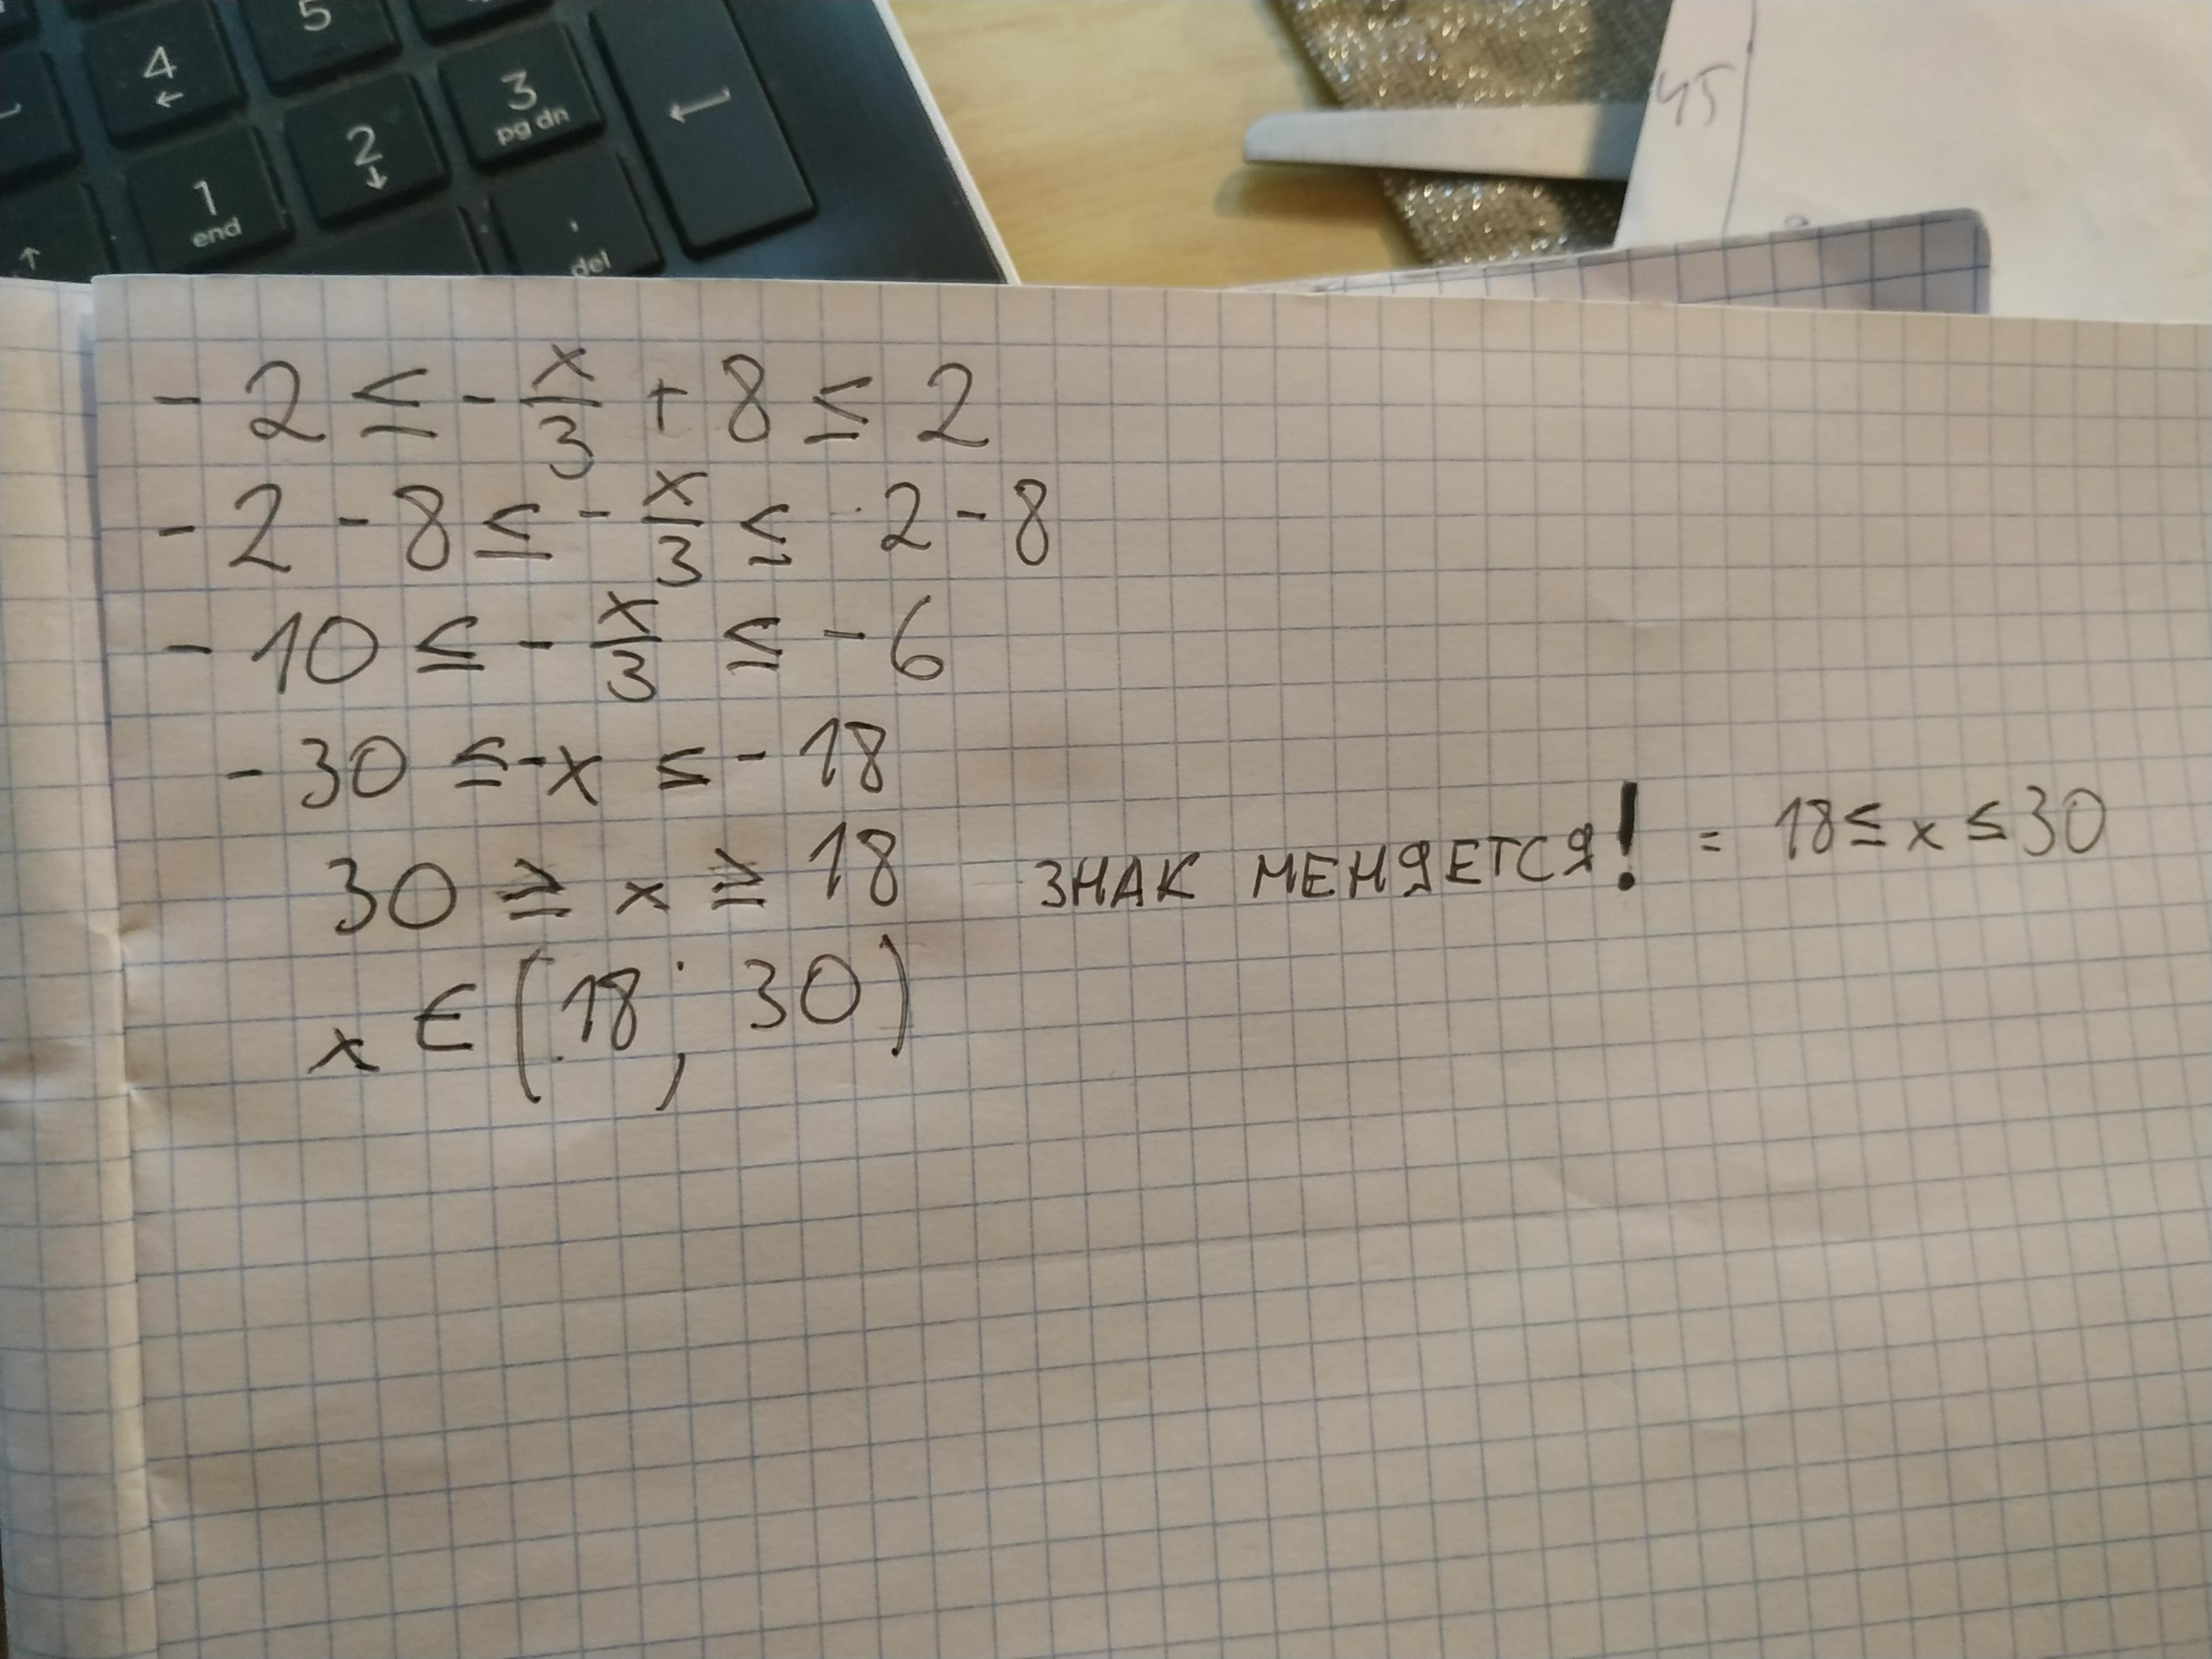 5
4
←
3
pg dn
2
↓
1
end
.
del
45
- 2 ≤ - x/3 + 8 ≤ 2
- 2 - 8 ≤ - x/3 ≤ 2 - 8
- 10 ≤ - x/3 ≤ - 6
- 30 ≤ - x ≤ - 18
30 ≥ x ≥ 18 ЗНАК МЕНЯЕТСЯ! = 18 ≤ x ≤ 30
x ∈ (18; 30)